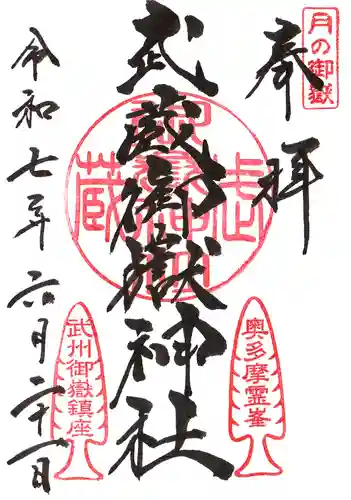 月の御嶽
奉拝
武蔵御嶽神社
奥多摩霊峯
武州御嶽鎮座
令和七年六月二十一日